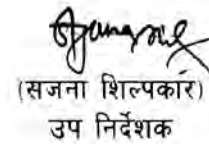 (सजना शिल्पकार)
उप निर्देशक